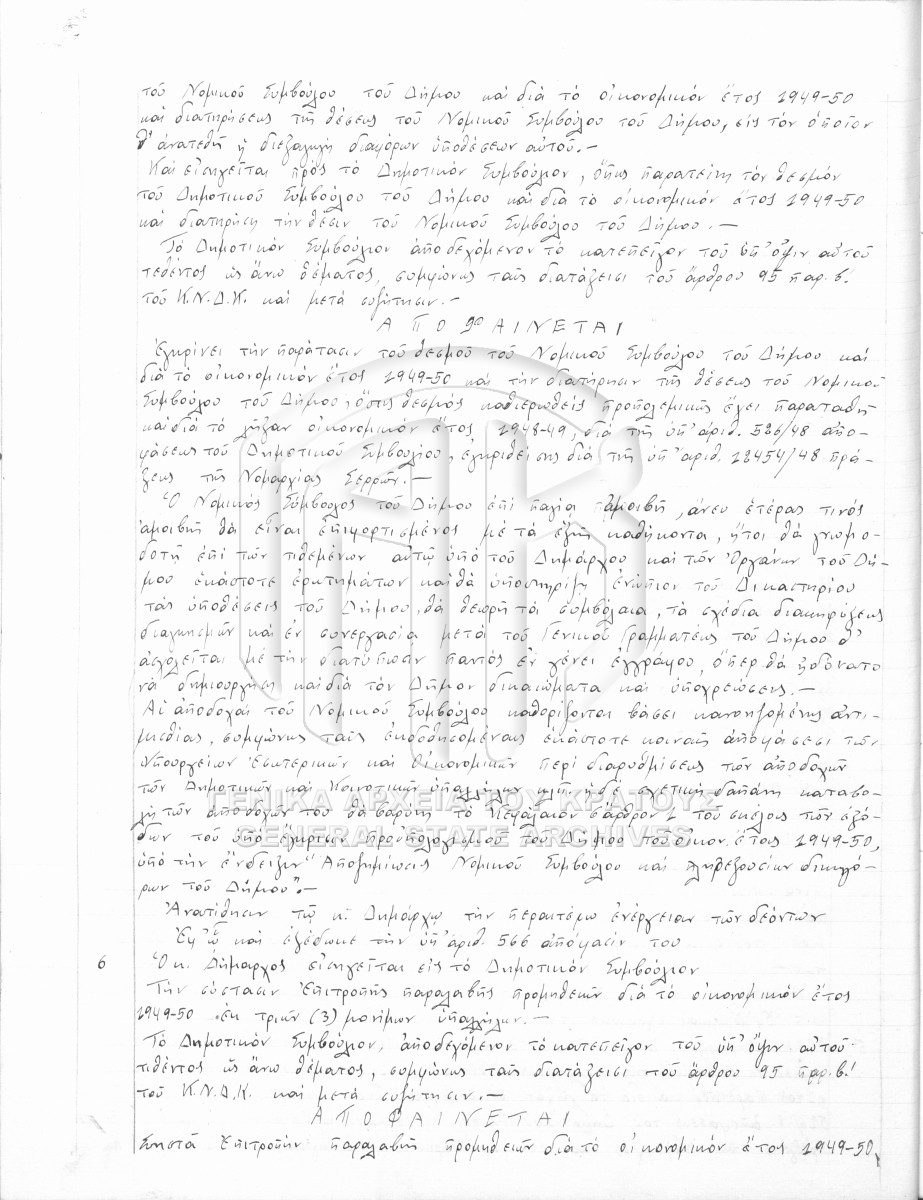 τοῦ Νομικοῦ Συμβούλου τοῦ Δήμου καί διά τό οἰκονομικόν ἔτος 1949-50
καί διατηρήσεως τῆς θέσεως τοῦ Νομικοῦ Συμβούλου τοῦ Δήμου, εἰς τόν ὁποῖον
θ' ἀνατεθῇ ἡ διεξαγωγή διαφόρων ὑποθέσεων αὐτοῦ.-
Καί εἰσηγεῖται πρός τό Δημοτικόν Συμβούλιον, ὅπως παρατείνῃ τόν θεσμόν
τοῦ Δημοτικοῦ Συμβούλου τοῦ Δήμου καί διά τό οἰκονομικόν ἔτος 1949-50
καί διατηρήσῃ τήν θέσιν τοῦ Νομικοῦ Συμβούλου τοῦ Δήμου.-
Τό Δημοτικόν Συμβούλιον ἀποδεχόμενον τό κατεπεῖγον τοῦ ὑπ' ὄψιν αὐτοῦ
τεθέντος ὡς ἄνω θέματος, συμφώνως ταῖς διατάξεσι τοῦ ἄρθρου 95 παρ. β'
τοῦ Κ.Ν.Δ.Κ. καί μετά συζήτησιν.-
ΑΠΟΦΑΙΝΕΤΑΙ
Ἐγκρίνει τήν παράτασιν τοῦ θεσμοῦ τοῦ Νομικοῦ Συμβούλου τοῦ Δήμου καί
διά τό οἰκονομικόν ἔτος 1949-50 καί τήν διατήρησιν τῆς θέσεως τοῦ Νομικοῦ
Συμβούλου τοῦ Δήμου, ὅστις θεσμός καθιερωθείς προπολεμικῶς ἔχει παραταθῆ
καί διά τό λῆξαν οἰκονομικόν ἔτος 1948-49, διά τῆς ὑπ' ἀριθ. 536/48 ἀπο-
φάσεως τοῦ Δημοτικοῦ Συμβουλίου, ἐγκριθείσης διά τῆς ὑπ' ἀριθ. 12454/48 πρά-
ξεως τῆς Νομαρχίας Σερρῶν.-
Ὁ Νομικός Σύμβουλος τοῦ Δήμου ἐπί παγίᾳ ἀμοιβῇ, ἄνευ ἑτέρας τινός
ἀμοιβῆς θά εἶναι ἐπιφορτισμένος μέ τά ἑξῆς καθήκοντα, ἤτοι θά γνωμο-
δοτῇ ἐπί τῶν τιθεμένων αὐτῷ ὑπό τοῦ Δημάρχου καί τῶν Ὀργάνων τοῦ Δή-
μου ἑκάστοτε ἐρωτημάτων καί θά ὑποστηρίζῃ ἐνώπιον τοῦ Δικαστηρίου
τάς ὑποθέσεις τοῦ Δήμου, θά θεωρῇ τά συμβόλαια, τά σχέδια διακηρύξεως
διαγωνισμῶν καί ἐν συνεργασίᾳ μετά τοῦ Γενικοῦ Γραμματέως τοῦ Δήμου θ'
ἀσχολεῖται μέ τήν διατύπωσιν παντός ἐν γένει ἐγγράφου, ὅπερ θά ἠδύνατο
νά δημιουργήσῃ καί διά τόν Δῆμον δικαιώματα καί ὑποχρεώσεις.-
Αἱ ἀποδοχαί τοῦ Νομικοῦ Συμβούλου καθορίζονται βάσει κανονιζομένης ἀντι-
μισθίας, συμφώνως ταῖς ἐκδοθησομέναις ἑκάστοτε κοιναῖς ἀποφάσεσι τῶν
Ὑπουργείων Ἐσωτερικῶν καί Οἰκονομικῶν περί διαρυθμίσεως τῶν ἀποδοχῶν
τῶν Δημοτικῶν καί Κοινοτικῶν ὑπαλλήλων κλπ. ἡ δέ σχετική δαπάνη καταβο-
λῆς τῶν ἀποδοχῶν του θά βαρύνῃ τό Κεφάλαιον ἄρθρον 1 τοῦ σκέλους τῶν ἐξό-
δων τοῦ ὑπό ἔγκρισιν προϋπολογισμοῦ τοῦ Δήμου τοῦ οἰκον. ἔτους 1949-50,
ὑπό τήν ἔνδειξιν "Ἀποζημιώσεις Νομικοῦ Συμβούλου καί πληρεξουσίων δικηγό-
ρων τοῦ Δήμου".-
Ἀνατίθησιν τῷ κ. Δημάρχῳ τήν περαιτέρω ἐνέργειαν τῶν δεόντων
Ἐφ' ᾧ καί ἐξέδωκε τήν ὑπ' ἀριθ. 566 ἀπόφασίν του
6 Ὁ κ. Δήμαρχος εἰσηγεῖται εἰς τό Δημοτικόν Συμβούλιον
Τήν σύστασιν Ἐπιτροπῆς παραλαβῆς προμηθειῶν διά τό οἰκονομικόν ἔτος
1949-50 ἐκ τριῶν (3) μονίμων ὑπαλλήλων.-
Τό Δημοτικόν Συμβούλιον, ἀποδεχόμενον τό κατεπεῖγον τοῦ ὑπ' ὄψιν αὐτοῦ
τιθέντος ὡς ἄνω θέματος, συμφώνως ταῖς διατάξεσι τοῦ ἄρθρου 95 παρ. β'
τοῦ Κ.Ν.Δ.Κ. καί μετά συζήτησιν.-
ΑΠΟΦΑΙΝΕΤΑΙ
Συνιστᾶ Ἐπιτροπήν παραλαβῆς προμηθειῶν διά τό οἰκονομικόν ἔτος 1949-50,
ΓΕΝΙΚΑ ΑΡΧΕΙΑ ΤΟΥ ΚΡΑΤΟΥΣ
GENERAL STATE ARCHIVES